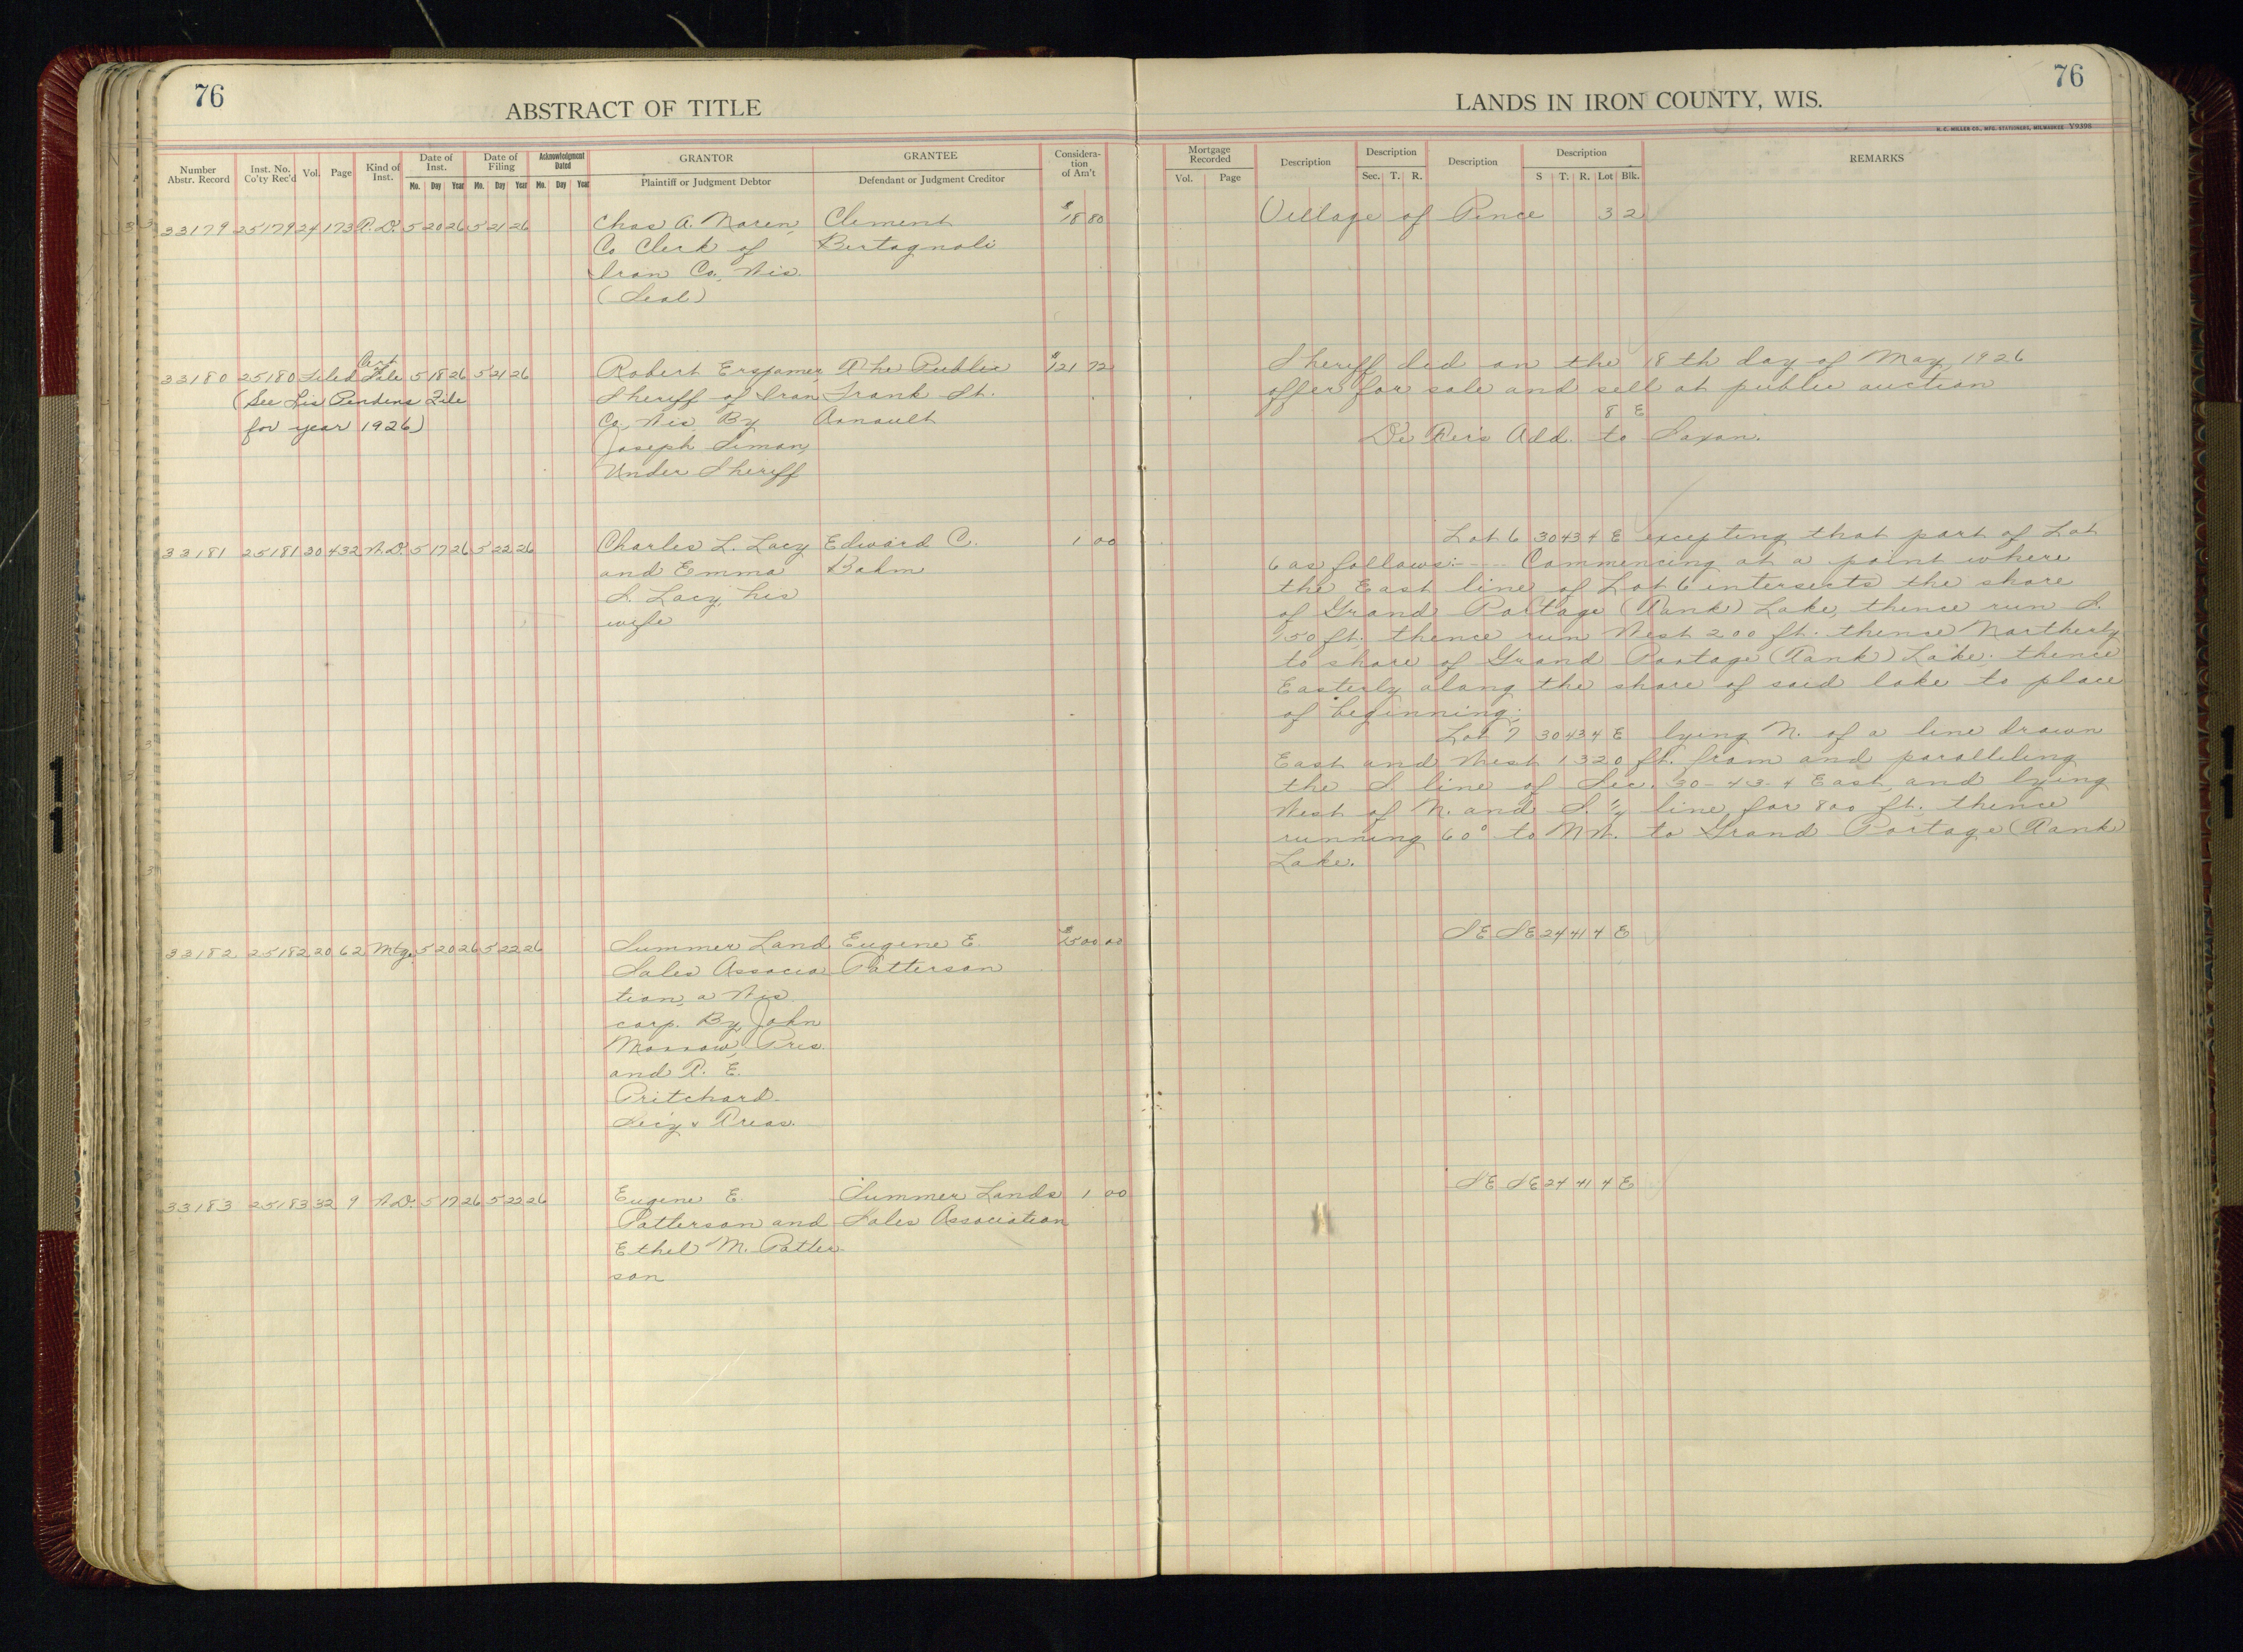 76
ABSTRACT OF TITLE
LANDS IN IRON COUNTY, WIS.
76
H. C. MILLER CO., MFG. STATIONERS, MILWAUKEE Y9398
Number Abstr. Record
Inst. No. Co'ty Rec'd
Vol.
Page
Kind of Inst.
Date of Inst.
Mo. Day Year
Date of Filing
Mo. Day Year
Acknowledgment Dated
Mo. Day Year
GRANTOR
Plaintiff or Judgment Debtor
GRANTEE
Defendant or Judgment Creditor
Considera-
tion
of Am't
Mortgage Recorded
Vol. Page
Description
Description
Sec. T. R.
Description
Description
S T. R. Lot Blk.
REMARKS
33179 25179 24 173 T. D. 5 20 26 5 21 26 Chas A. Noren, Clement $18 80 Village of Pence 3 2
Co Clerk of Bertagnoli
Iron Co, Wis.
(Seal)
33180 25180 Filed Cert of Sale 5 18 26 5 21 26 Robert Erspamer, The Public $121 72 Sheriff did on the 18th day of May, 1926
(See Lis Pendens File Sheriff of Iron Frank St. offer for sale and sell at public auction
for year 1926) Co, Wis. By Arnault 8 E
Joseph Simon, De Rer's Add. to Saxon.
Under Sheriff
33181 25181 30 432 W.D. 5 17 26 5 22 26 Charles L. Lacy Edward C. 1 00 Lot 6 30 43 4 E excepting that part of Lot
and Emma Bahm 6 as follows:- Commencing at a point where
S. Lacy, his the East line of Lot 6 intersects the shore
wife of Grand Portage (Tank) Lake, thence run S.
150 ft. thence run West 200 ft. thence Northerly
to shore of Grand Portage (Tank) Lake, thence
Easterly along the shore of said lake to place
of beginning;
Lot 7 30 43 4 E lying N. of a line drawn
East and West 1320 ft. from and paralleling
the S. line of Sec. 30-43-4 East, and lying
West of N. and S. "y line for 800 ft. thence
running 60° to NW. to Grand Portage (Tank
Lake.
33182 25182 20 62 Mtg. 5 20 26 5 22 26 Summer Land Eugene E. $2500 00 SE SE 24 41 4 E
Sales Associa Patterson
tion, a Wis
corp. By John
Morrow, Pres.
and T. E.
Pritchard
Sec'y & Treas.
33183 25183 32 9 W.D. 5 17 26 5 22 26 Eugene E. Summer Lands 1 00 SE SE 24 41 4 E
Patterson and Sales Association
Ethel M. Patter-
son